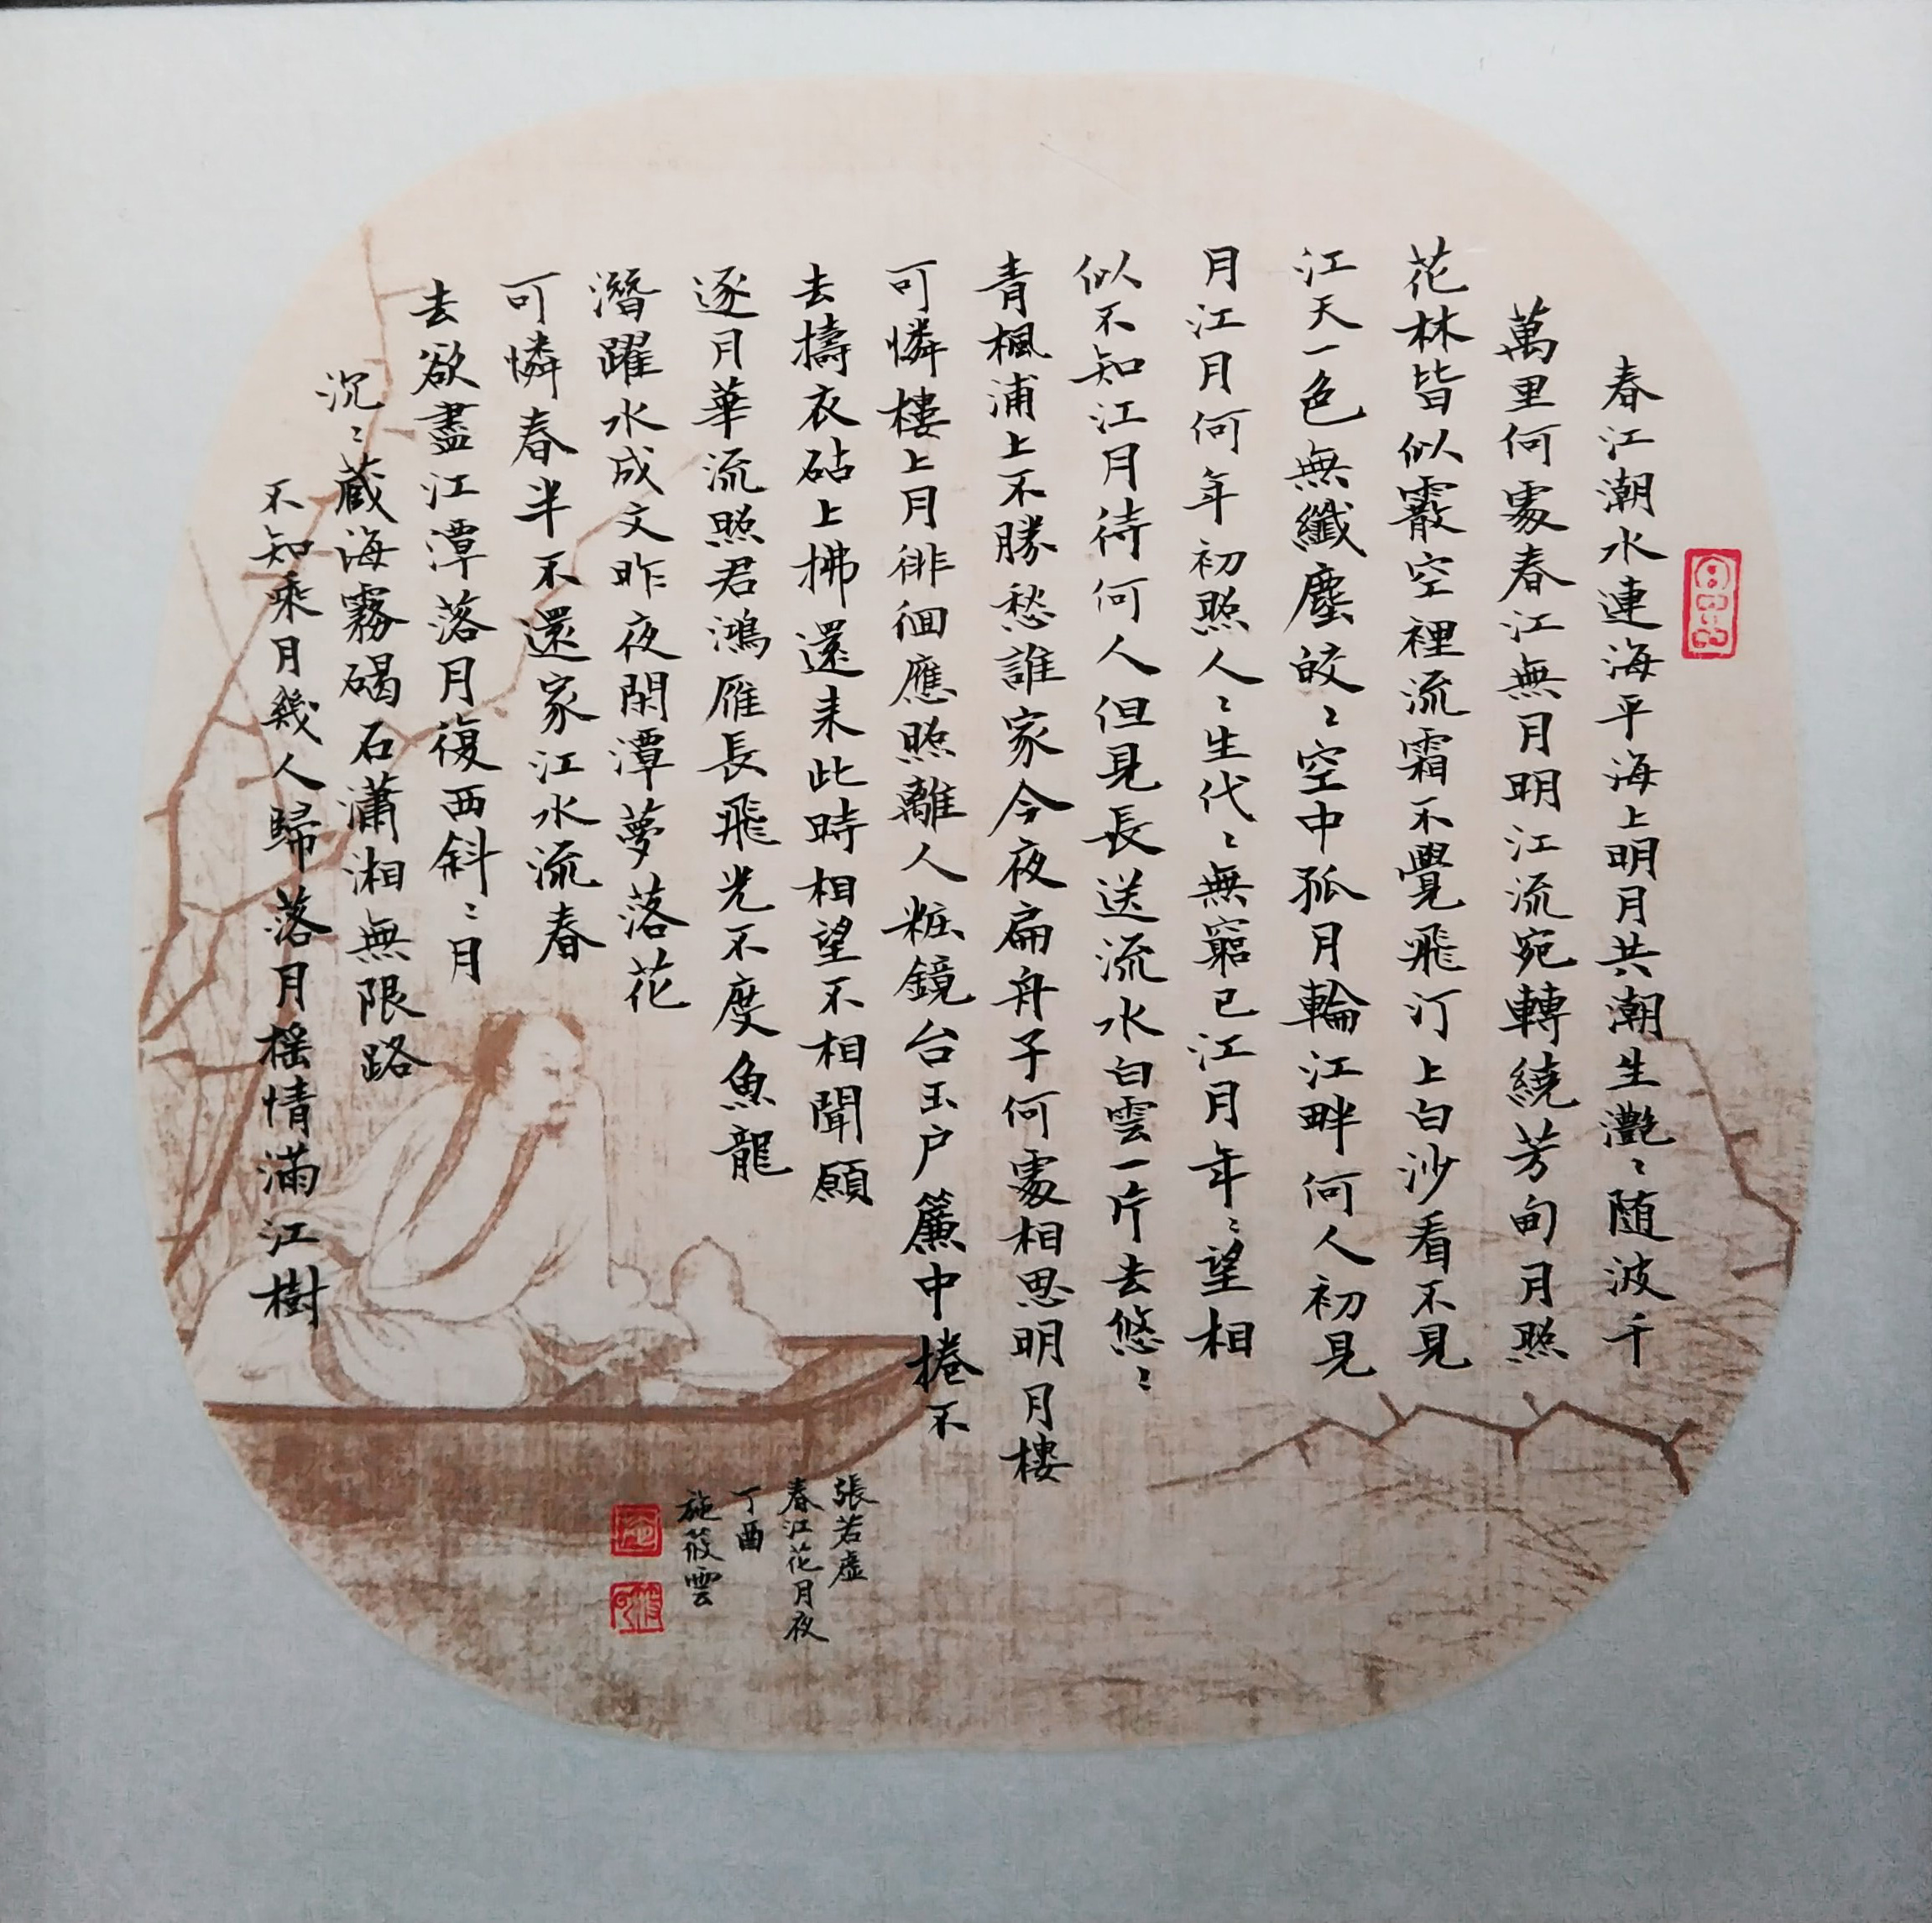 春江潮水連海平海上明月共潮生灔〻随波千
萬里何處春江無月明江流宛轉繞芳甸月照
花林皆似霰空裡流霜不覺飛汀上白沙看不見
江天一色無纖塵皎〻空中孤月輪江畔何人初見
月江月何年初照人〻生代〻無窮已江月年〻望相
似不知江月待何人但見長送流水白雲一片去悠〻
青楓浦上不勝愁誰家今夜扁舟子何處相思明月樓
可憐樓上月徘徊應照離人粧鏡台玉户簾中捲不
去擣衣砧上拂還来此時相望不相聞願
逐月華流照君鴻雁長飛光不度魚龍
潛躍水成文昨夜閑潭夢落花
可憐春半不還家江水流春
去欲盡江潭落月復西斜〻月
沉〻蔵海霧碣石瀟湘無限路
不知乘月幾人歸落月摇情滿江樹
張若虛
春江花月夜
丁酉
施莜雲